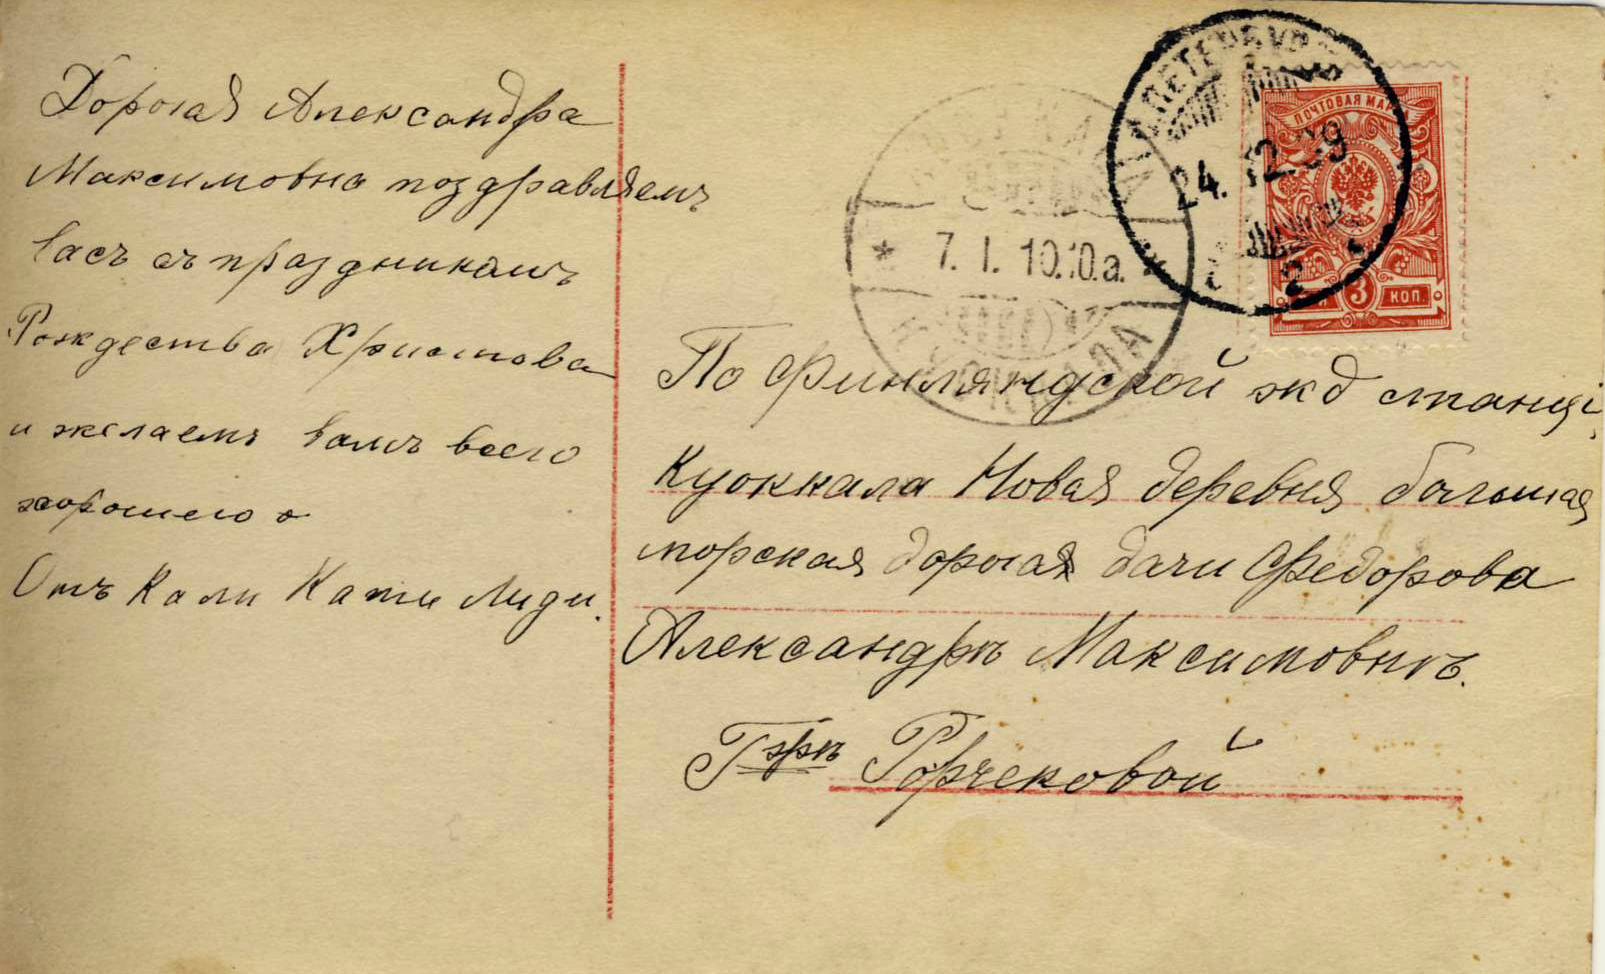 Дорогая Александра
Максимовна поздравляемъ
васъ съ праздникомъ
Рождества Христова
и желаемъ вамъ всего
хорошего
Отъ Коли Кати Лиди.
С.ПЕТЕРБУРГ
24.12.09
2
7.I.10.10.a.
ПОЧТОВАЯ МАРКА
3 КОП.
По Финляндской жд станці
Куоккала Новая деревня большая
морская дорога дачи Федорова
Александрѣ Максимовнѣ.
Гжѣ